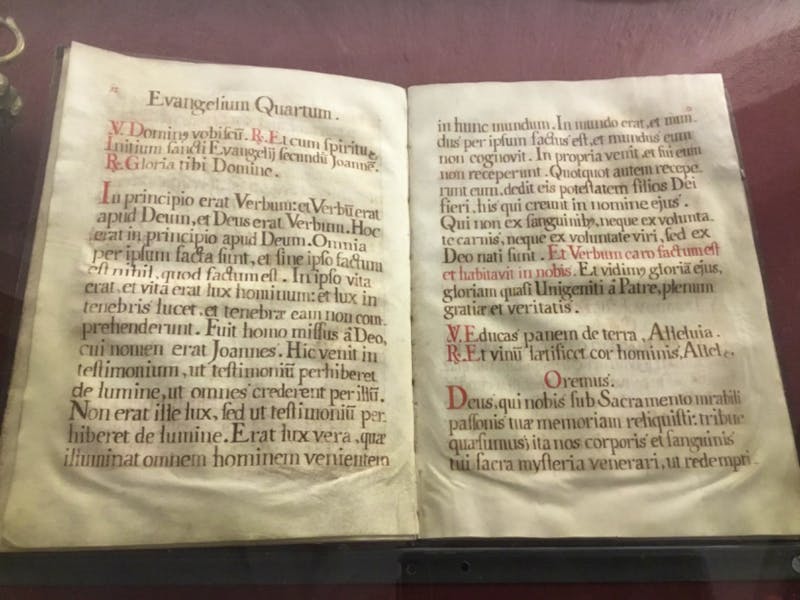 Evangelium Quartum.
V. Dominꝰ vobiscū. R. Et cum spiritu
Initium sancti Evangelij secundū Joannē.
R. Gloria tibi Domine.
In principio erat Verbum: et Verbū erat
apud Deum, et Deus erat Verbum. Hoc
erat in principio apud Deum. Omnia
per ipsum facta sunt, et sine ipso factum
est nihil, quod factum est. In ipso vita
erat, et vita erat lux hominum: et lux in
tenebris lucet, et tenebræ eam non com-
prehenderunt. Fuit homo missus â Deo,
cui nomen erat Joannes. Hic venit in
testimonium, ut testimoniū perhiberet
de lumine, ut omnes crederent per illū.
Non erat ille lux, sed ut testimoniū per-
hiberet de lumine. Erat lux vera, quæ
illuminat omnem hominem venientem
in hunc mundum. In mundo erat, et mun-
dus per ipsum factus est, et mundus eum
non cognovit. In propria venit, et sui eum
non receperunt. Quotquot autem recepe-
runt eum, dedit eis potestatem filios Dei
fieri, his qui credunt in nomine ejus.
Qui non ex sanguinibꝰ, neque ex volunta-
te carnis, neque ex voluntate viri, sed ex
Deo nati sunt. Et Verbum caro factum est
et habitavit in nobis. Et vidimꝰ gloriā ejus,
gloriam quasi Unigeniti â Patre, plenum
gratiæ et veritatis.
V. Educas panem de terra, Alleluia.
R. Et vinū lætificet cor hominis, Allel.
Oremus.
Deus, qui nobis sub Sacramento mirabili
passionis tuæ memoriam reliquisti: tribue
quæsumus, ita nos corporis et sanguinis
tui sacra mysteria venerari, ut redempti-